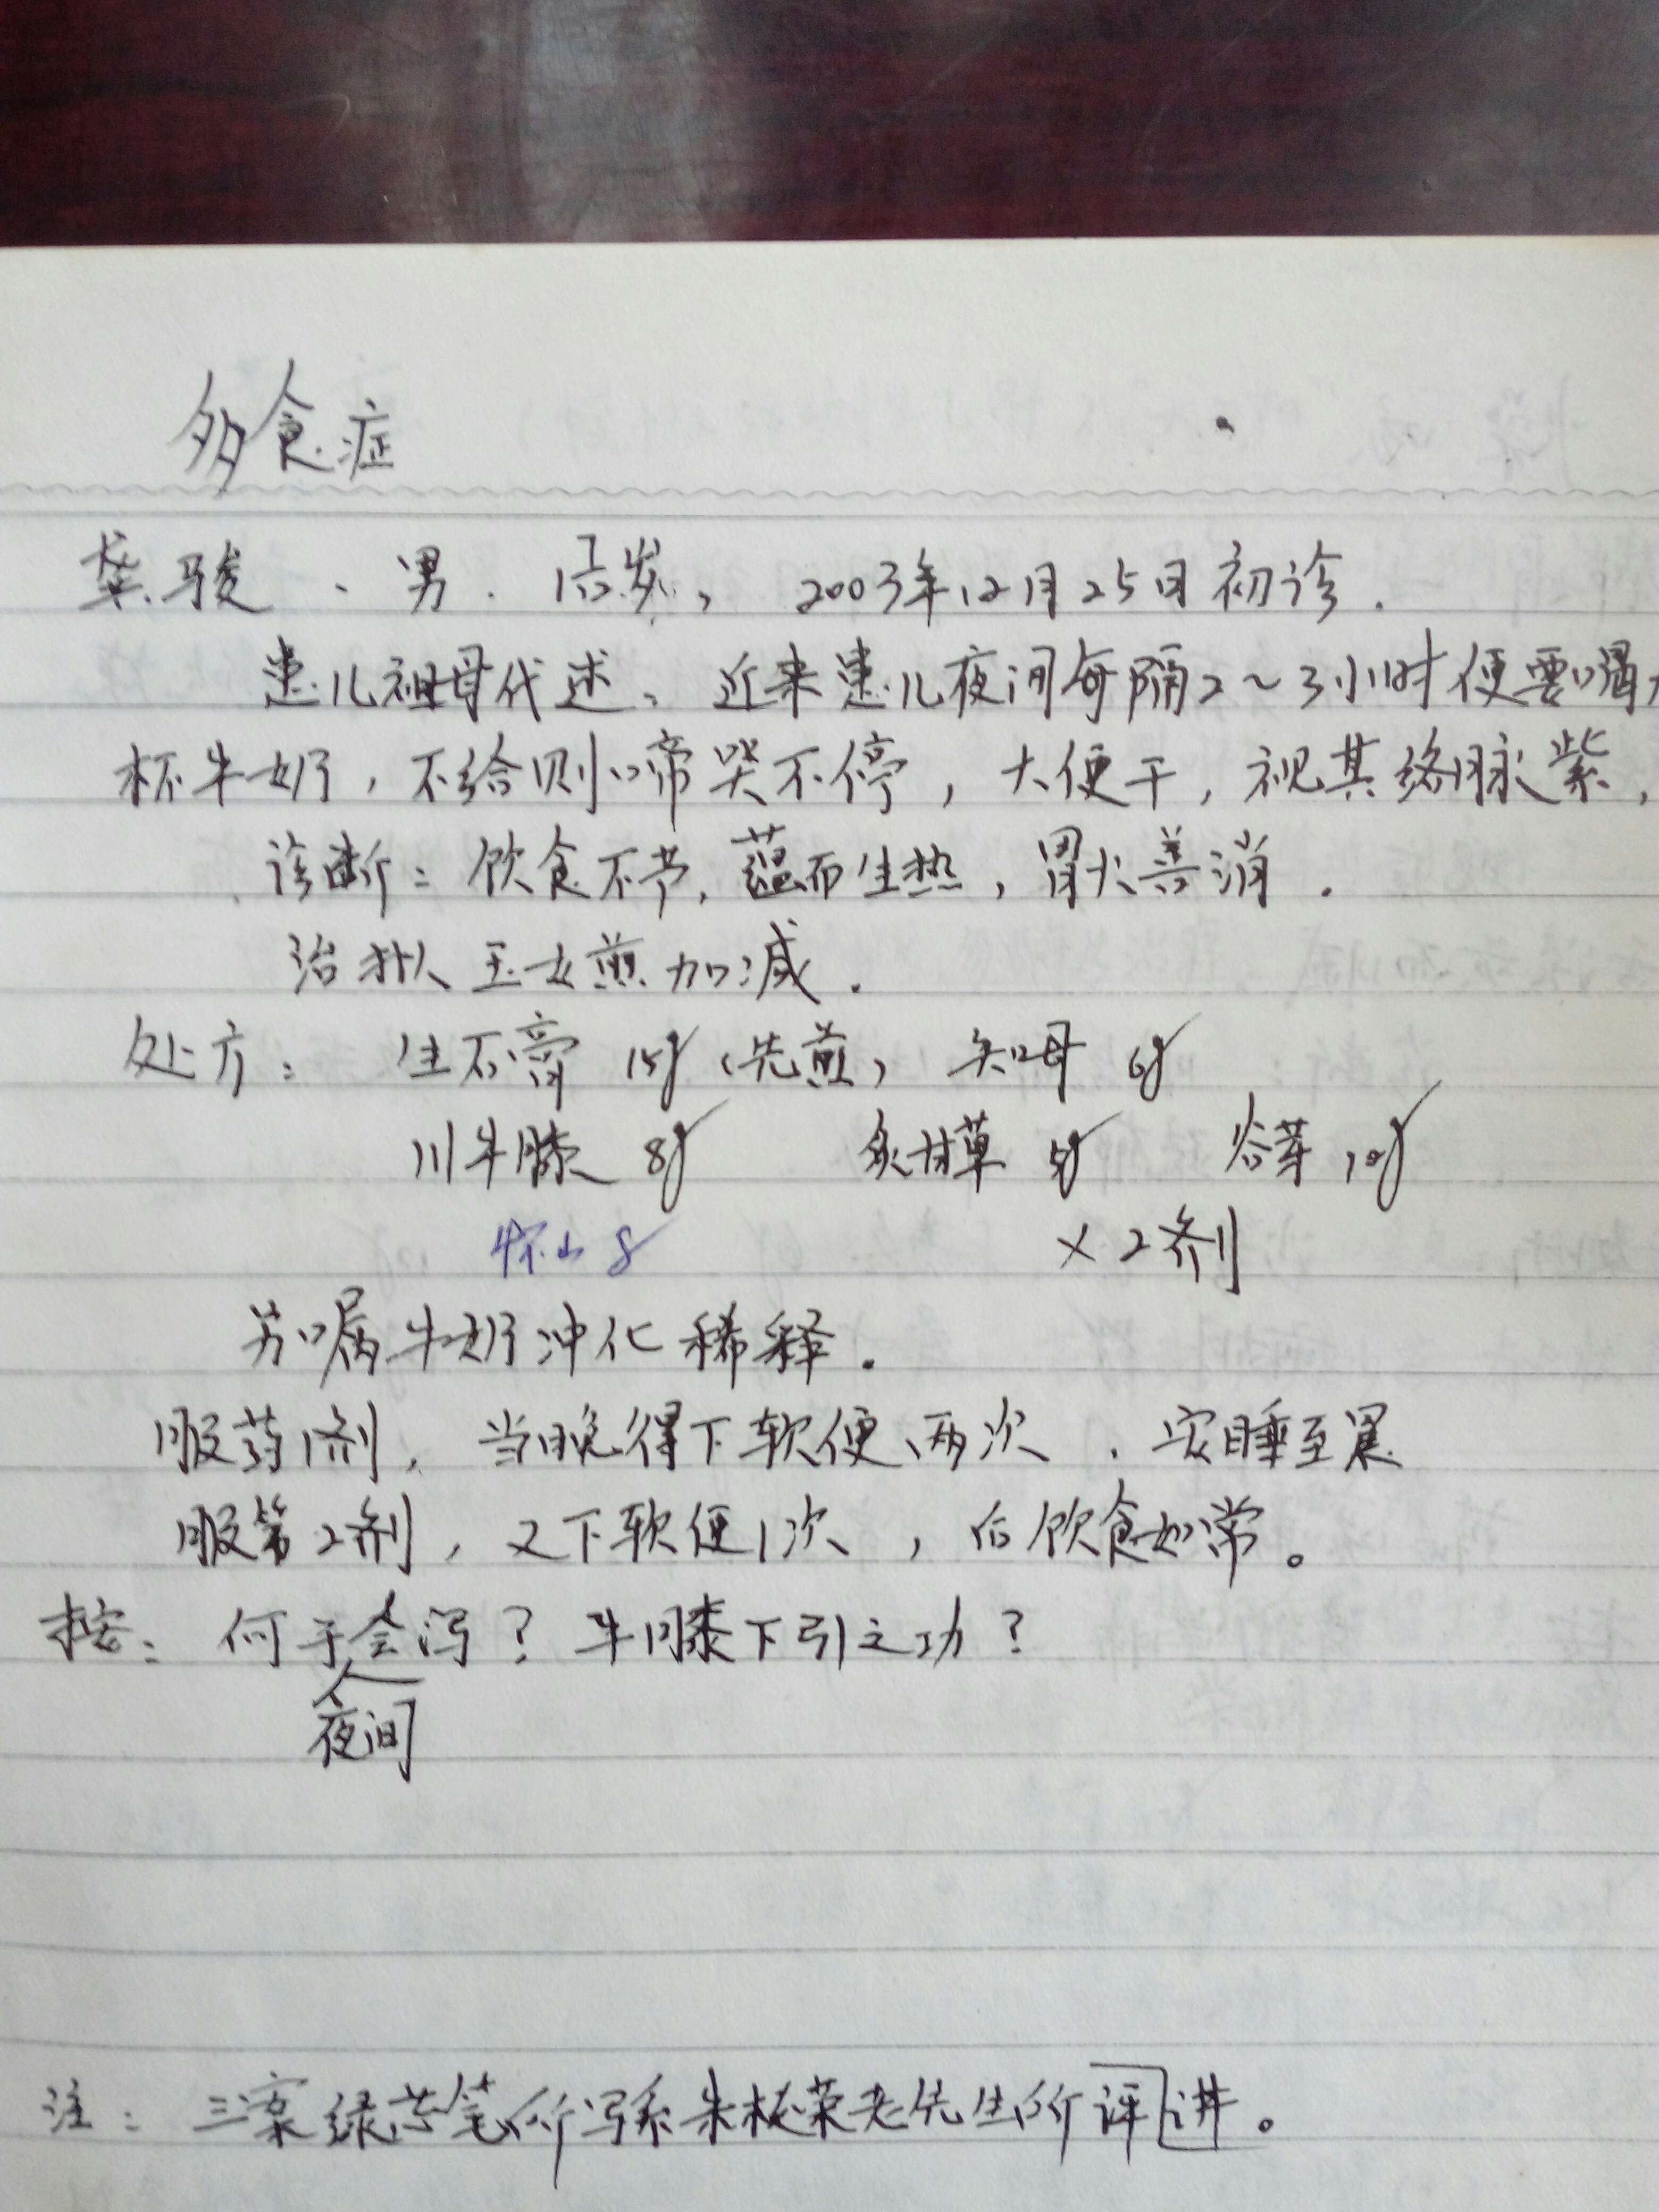 多食症
龚骏、男. 1岁, 2003年12月25日初诊.
患儿祖母代述、近来患儿夜间每隔2~3小时便要喝
杯牛奶,不给则啼哭不停,大便干,视其络脉紫,
诊断:饮食不节,蕴而生热,胃火善消.
治拟玉女煎加减.
处方: 生石膏 15g(先煎) 知母 6g
川牛膝 8g 炙甘草 5g 谷芽 10g
怀山 8
×2剂
另嘱牛奶冲化稀释.
服药1剂,当晚得下软便两次.安睡至晨
服第2剂,又下软便1次,后饮食如常。
按:何于会泻?牛膝下引之功?
夜间
注:三案绿芯笔所写系朱 荣老先生所评讲。